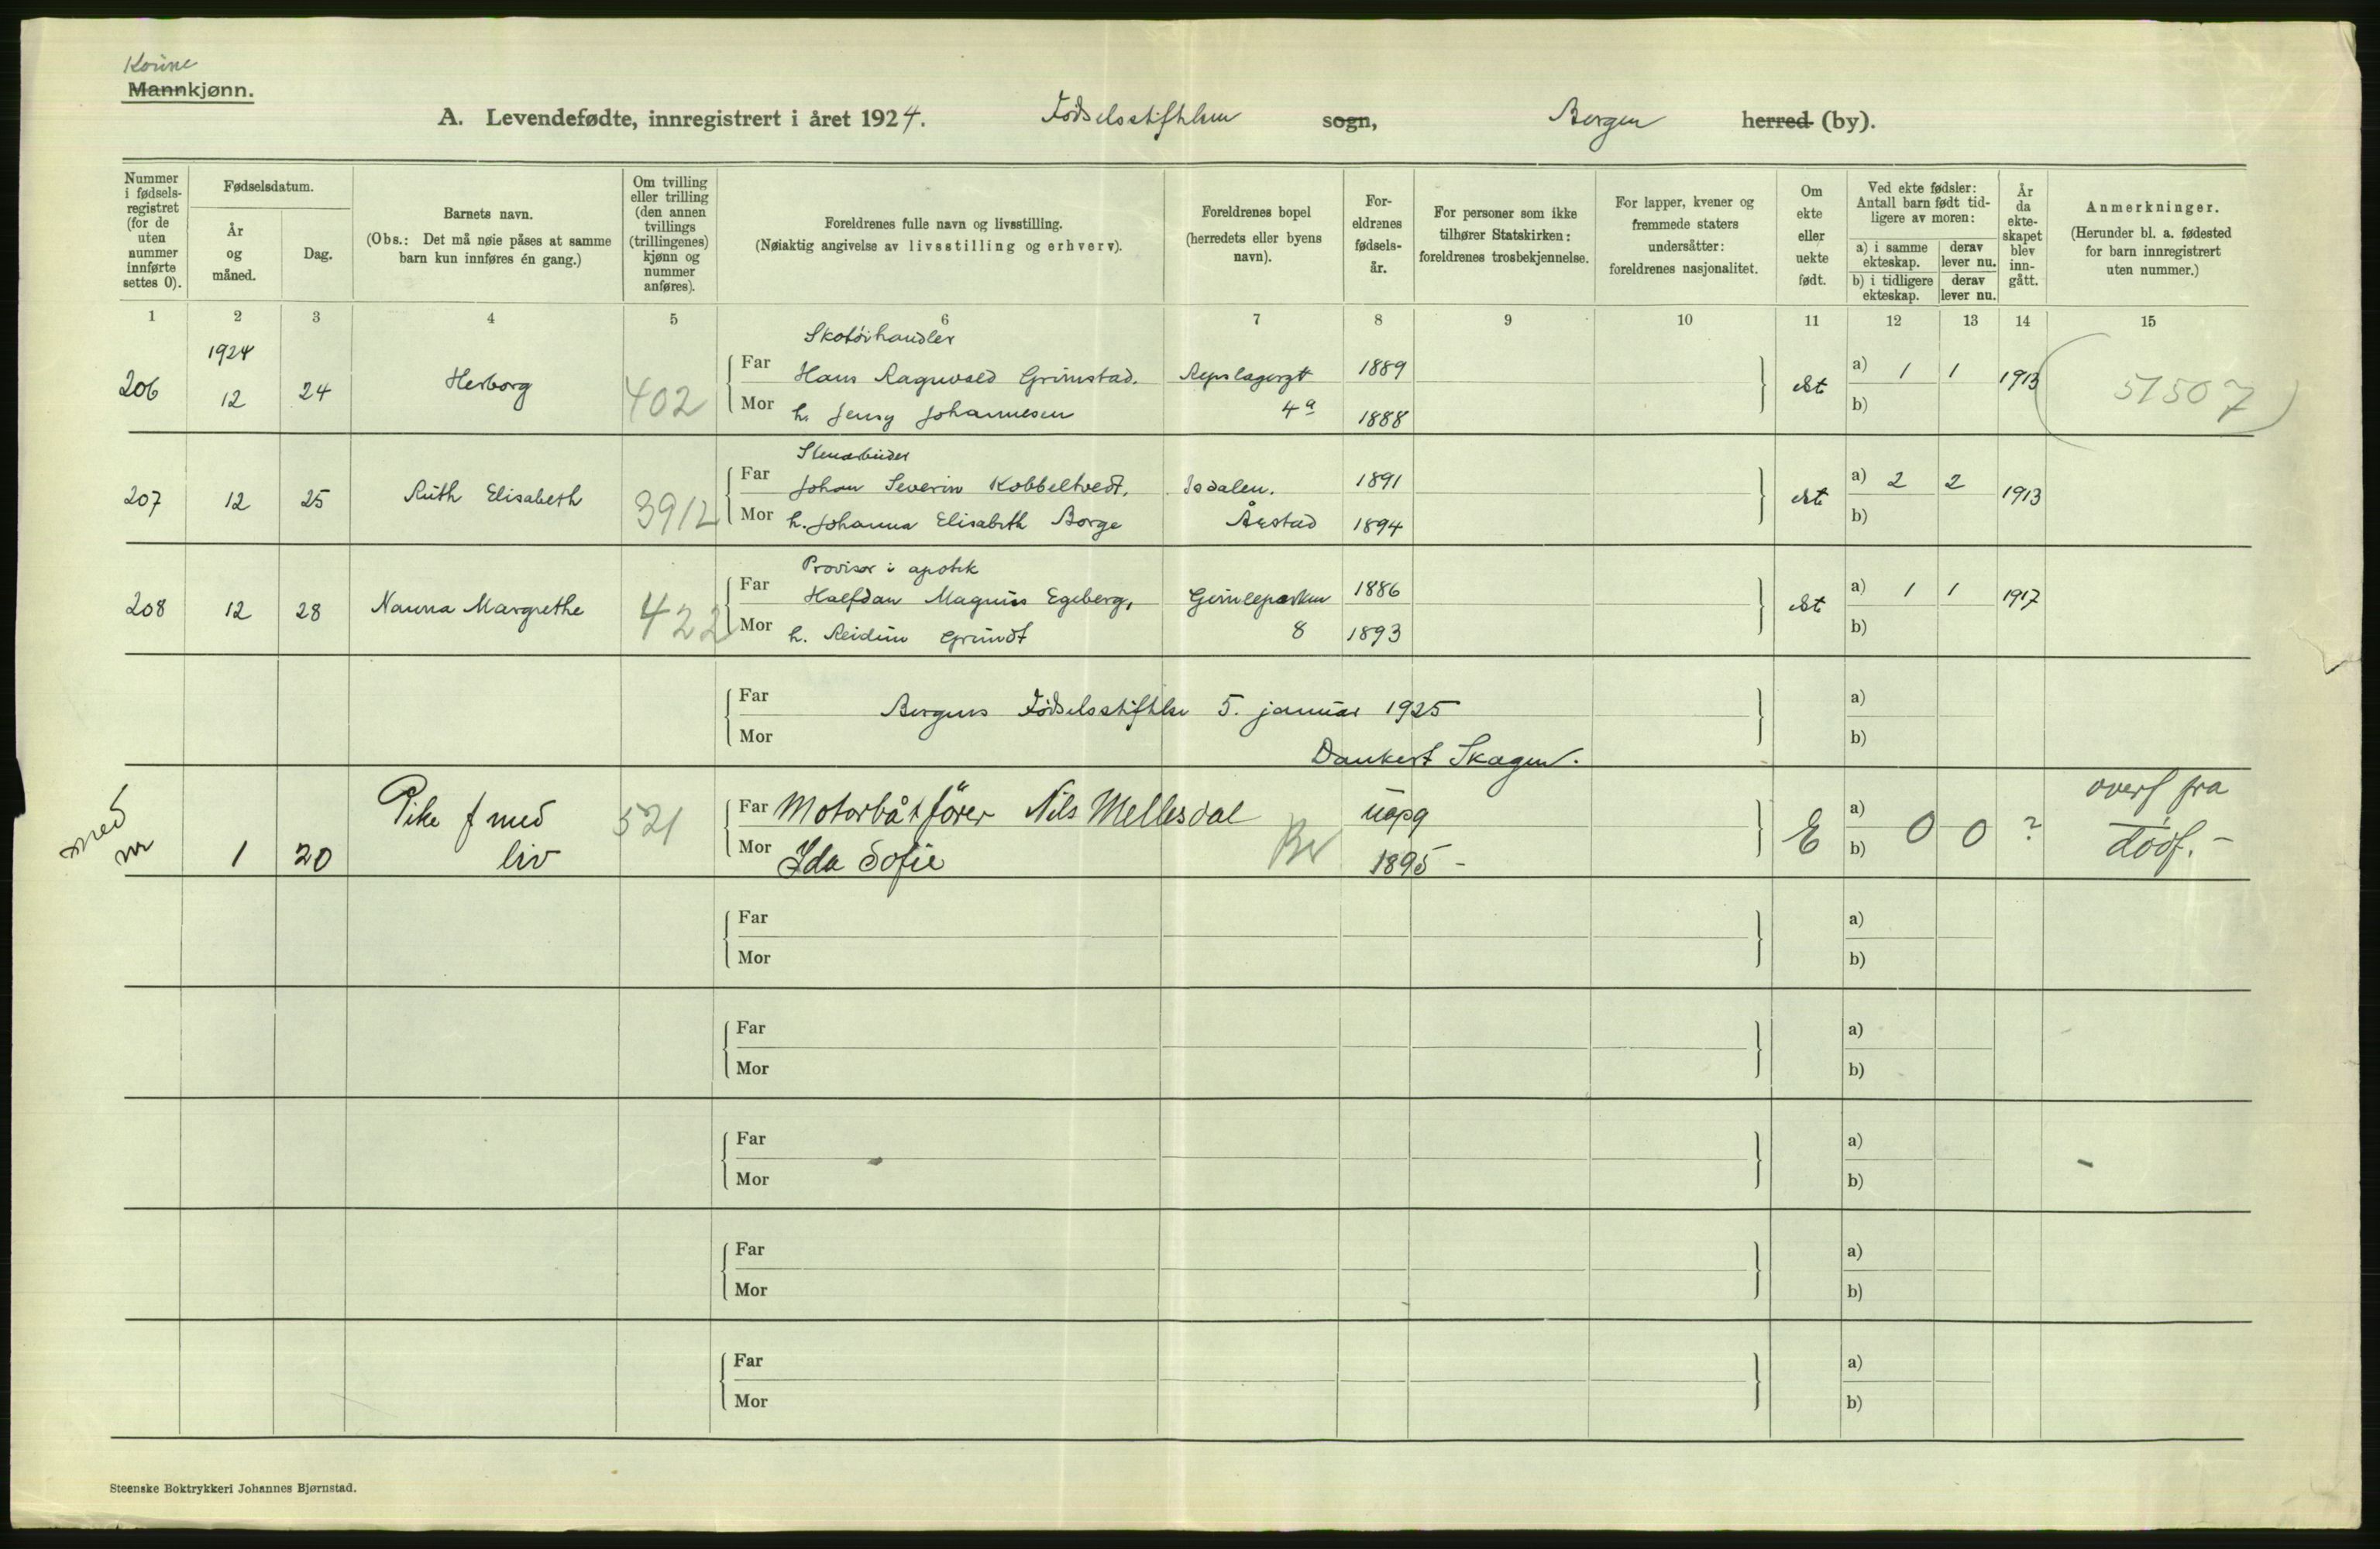 Kvinne
Mannkjønn.
A. Levendefødte, innregistrert i året 1924. Fødselsstiftelsen sogn, Bergen herred (by).
Nummer i fødselsregistret (for de uten nummer innførte settes 0).
Fødselsdatum.
År og måned.
Dag.
Barnets navn.
(Obs.: Det må nøie påses at samme barn kun innføres én gang.)
Om tvilling eller trilling (den annen tvillings (trillingenes) kjønn og nummer anføres).
Foreldrenes fulle navn og livsstilling.
(Nøiaktig angivelse av livsstilling og erhverv).
Foreldrenes bopel (herredets eller byens navn).
Foreldrenes fødselsår.
For personer som ikke tilhører Statskirken: foreldrenes trosbekjennelse.
For lapper, kvener og fremmede staters undersåtter: foreldrenes nasjonalitet.
Om ekte eller uekte født.
Ved ekte fødsler: Antall barn født tidligere av moren:
a) i samme ekteskap.
derav lever nu.
b) i tidligere ekteskap.
derav lever nu.
År da ekteskapet blev inngått.
Anmerkninger.
(Herunder bl. a. fødested for barn innregistrert uten nummer.)
1 2 3 4 5 6 7 8 9 10 11 12 13 14 15
1924
Skotøihandler
206 12 24 Herborg 402 Far Hans Ragnvald Grimstad. Repslagergt 1889 ekt a) 1 1 1913 51507
Mor h. Jenny Johannesen 4a 1888 b)
Stenarbeider
207 12 25 Ruth Elisabeth 3912 Far Johan Severin Kobbeltvedt, Isdalen. 1891 ekt a) 2 2 1913
Mor h. Johanna Elisabeth Borge Årstad 1894 b)
Provisor i apotek
208 12 28 Nanna Margrethe 422 Far Halfdan Magnus Egeberg, Gimleparken 1886 ekt a) 1 1 1917
Mor h. Reidun Grundt 8 1893 b)
Far Bergens Fødselsstiftelse 5. januar 1925 a)
Mor b)
Dankert Skagen.
med nr 1 20 Pike f med liv 521 Far Motorbåtfører Nils Mellesdal uopg E a) 0 0 ? overf fra
Mor Ida Sofie Be 1895 - b) dødf. -
Far a)
Mor b)
Far a)
Mor b)
Far a)
Mor b)
Far a)
Mor b)
Far a)
Mor b)
Steenske Boktrykkeri Johannes Bjørnstad.